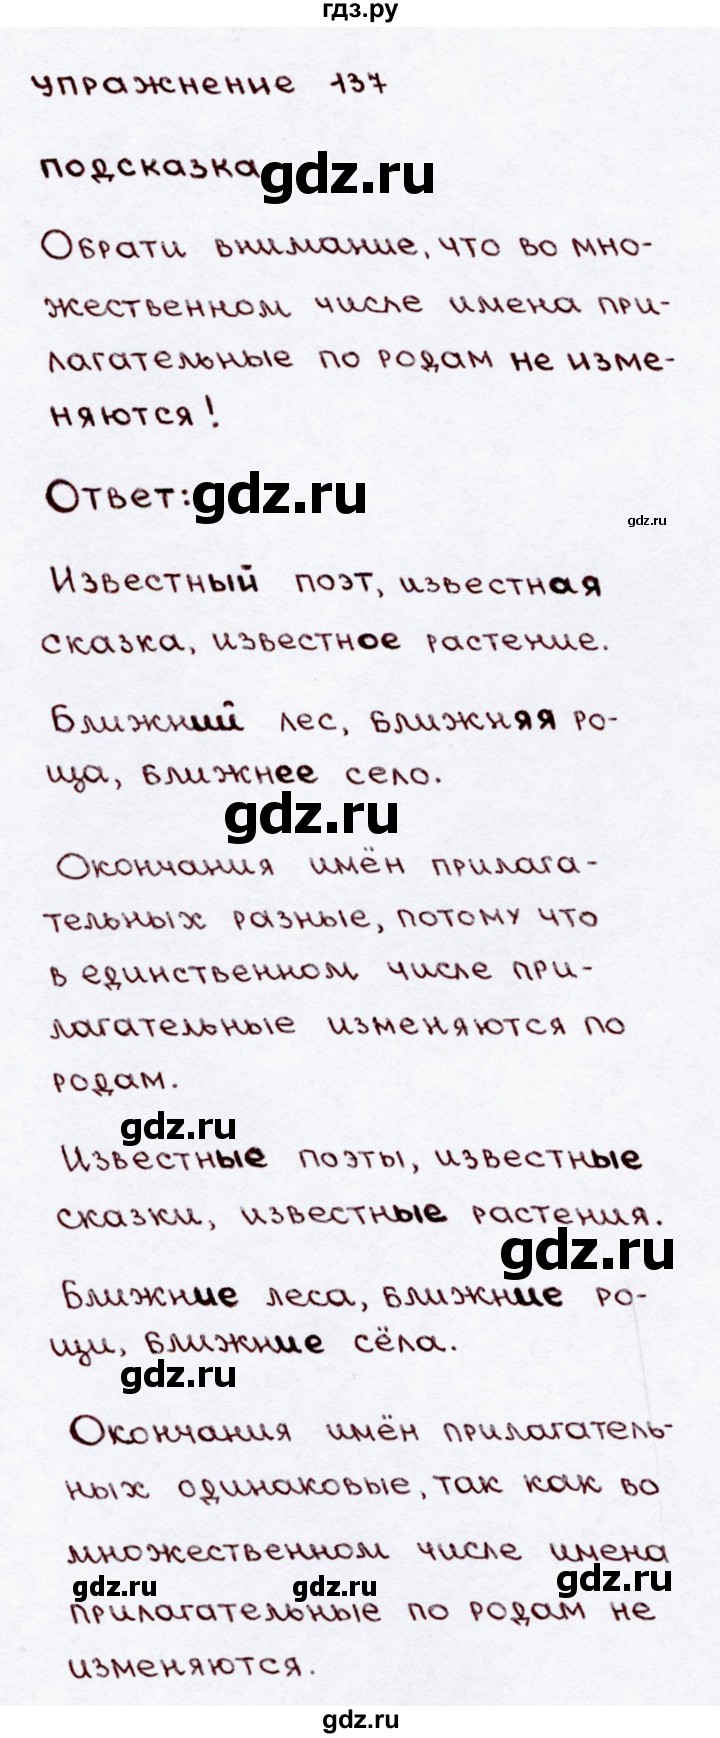 гдз.ру
упражнение 137
подсказка gdz.ru
Обрати внимание, что во мно-
жественном числе имена при-
лагательные по родам не изме-
няются!
Ответ: gdz.ru
gdz.ru
Известный поэт, известная
сказка, известное растение.
Ближний лес, ближняя ро-
ща, ближнее село.
gdz.ru
Окончания имён прилага-
тельных разные, потому что
в единственном числе при-
лагательные изменяются по
родам.
gdz.ru
Известные поэты, известные
сказки, известные растения.
gdz.ru
Ближние леса, ближние ро-
щи, ближние сёла.
gdz.ru
Окончания имён прилагатель-
ных одинаковые, так как во
множественном числе имена
gdz.ru gdz.ru gdz.ru
прилагательные по родам не
изменяются.
gdz.ru